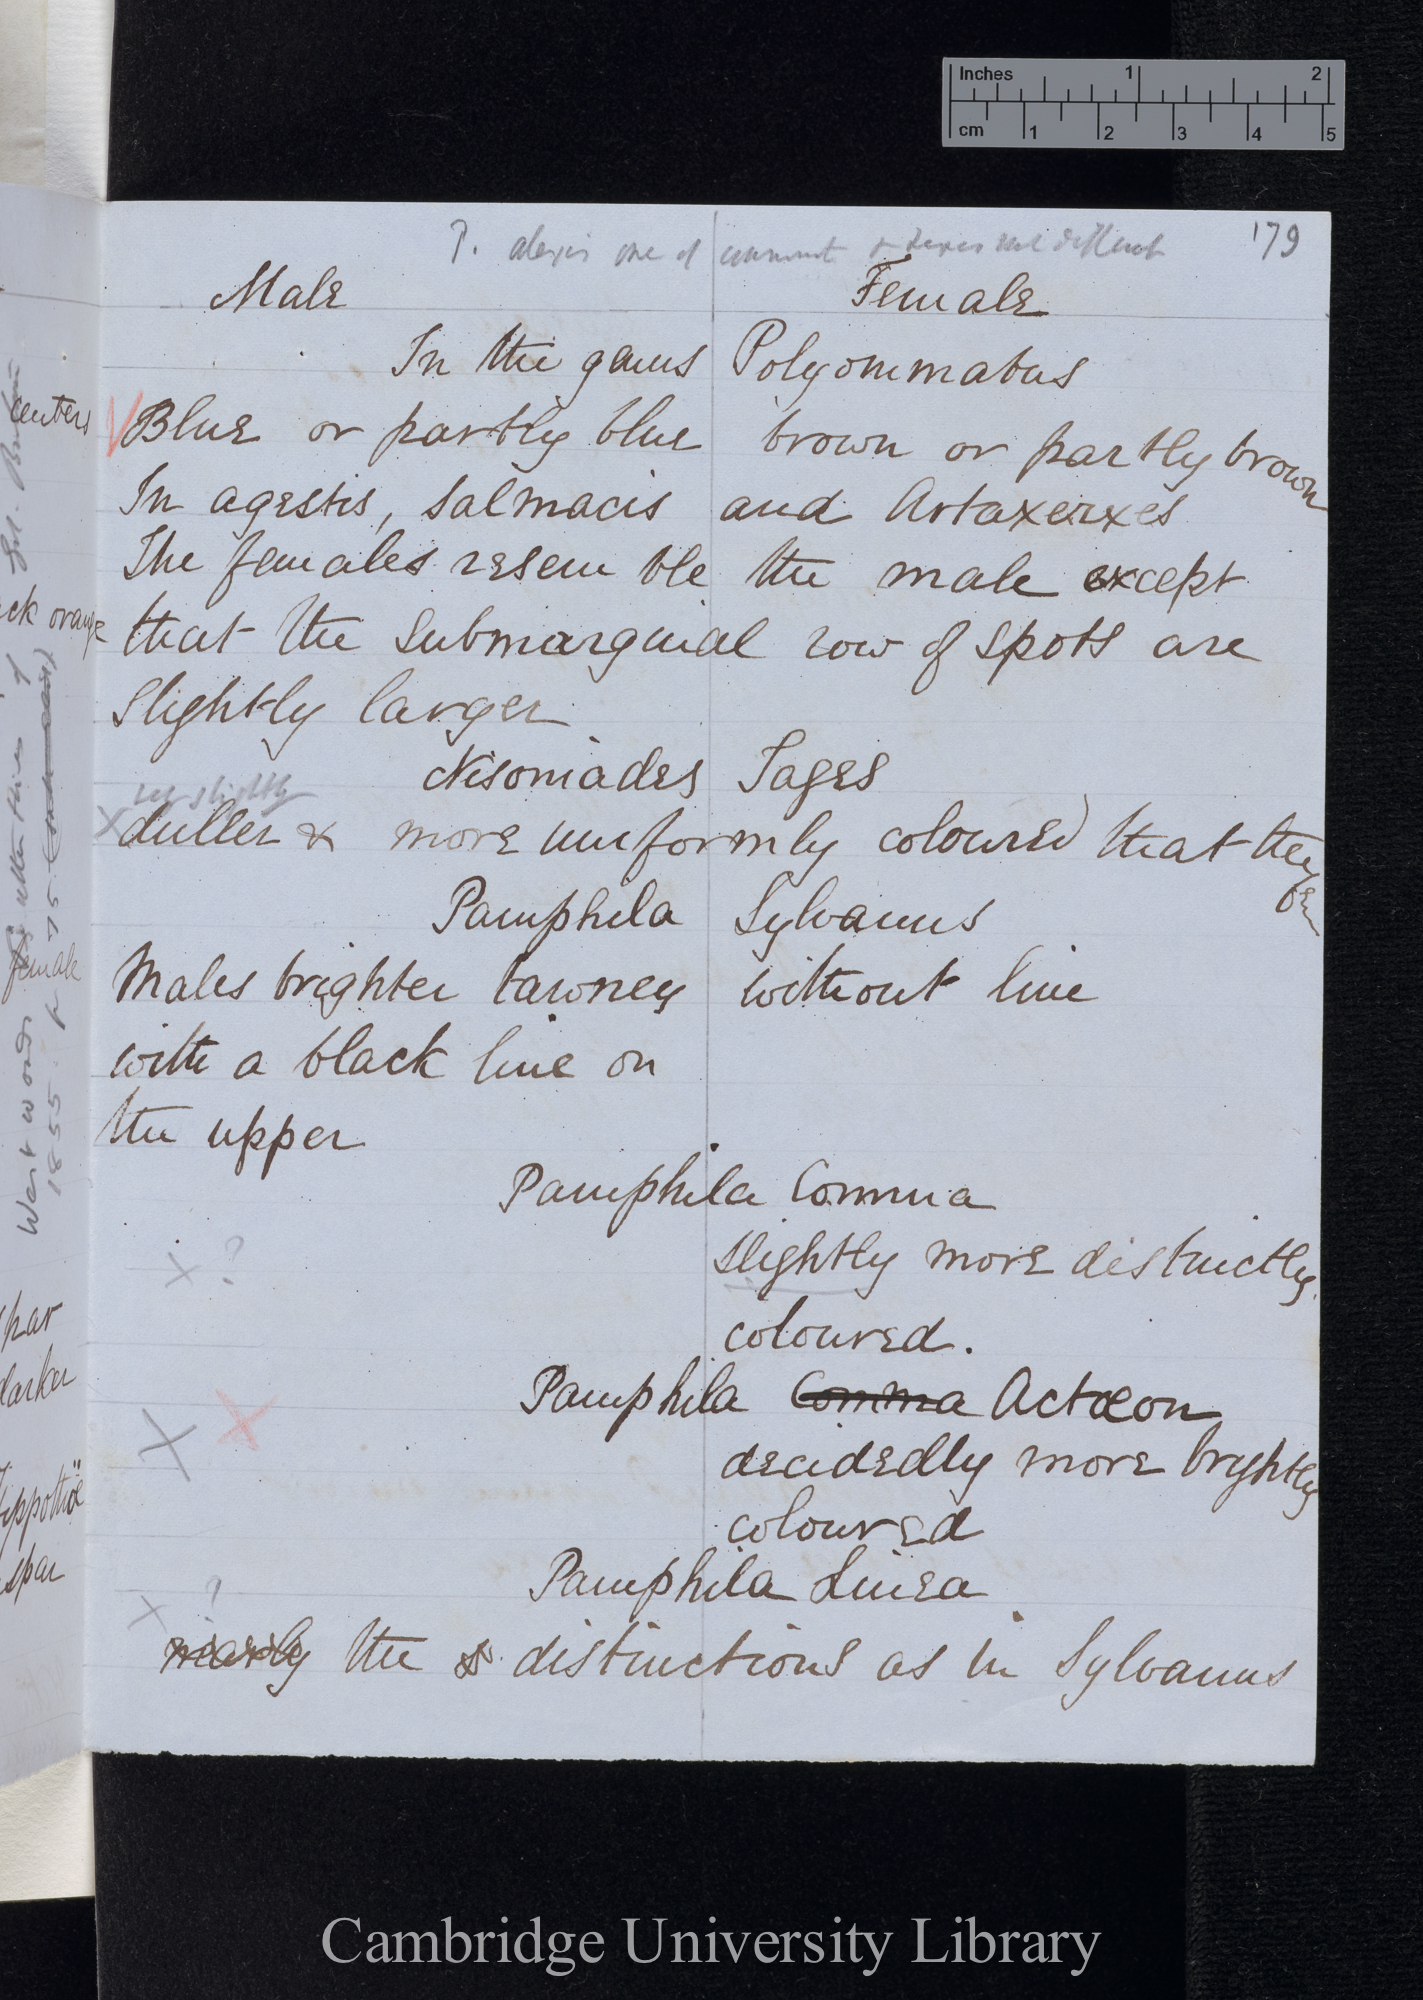 Inches 1 2
cm 1 2 3 4 5
P. alexis one of commonest & sexes are different
179
Male Female
In the genus Polyommatus
Blue or partly blue brown or partly brown
In agestis, Salmacis and Artaxerxes
The females resemble the male except
that the submarginal row of spots are
slightly larger
Nisoniades Tages
very slightly
duller & more uniformly coloured that the
Pamphila Sylvanus
Males brighter tawney without line
with a black line on
the upper
Pamphila Comma
X ?
slightly more distinctly
coloured.
Pamphila Comma Actæon
X X
decidedly more brightly
coloured
Pamphila Linea
X ?
nearly the s distinctions as in Sylvanus
centers
ck orange
female
par
darker
ippothöe
spar
Westwood
1855 p 75
Cambridge University Library